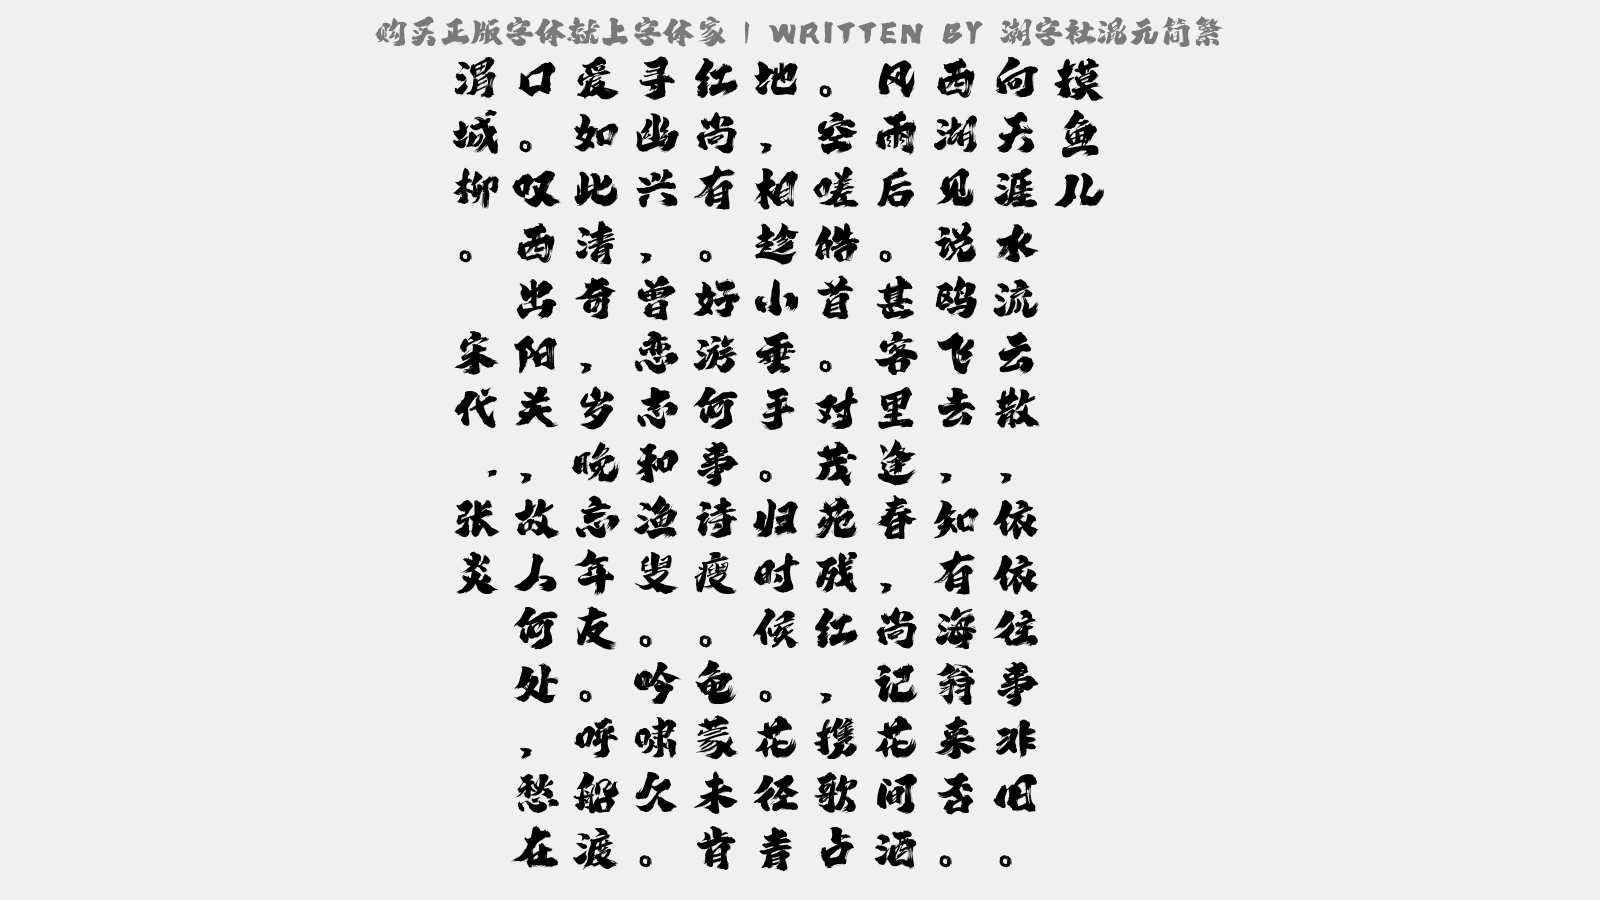 购买正版字体就上字体家 | WRITTEN BY 潮字社混元简繁
摸鱼儿
向天涯水流云散，依依往事非旧。
西湖见说鸥飞去，知有海翁来否。
风雨后。甚客里逢春，尚记花间酒
。空嗟皓首。对茂苑残红，携歌占
地，相趁小垂手。归时候。花径青
红尚有。好游何事诗瘦。龟蒙未肯
寻幽兴，曾恋志和渔叟。吟啸久。
爱如此清奇，岁晚忘年友。呼船渡
口。叹西出阳关，故人何处，愁在
渭城柳。 宋代·张炎